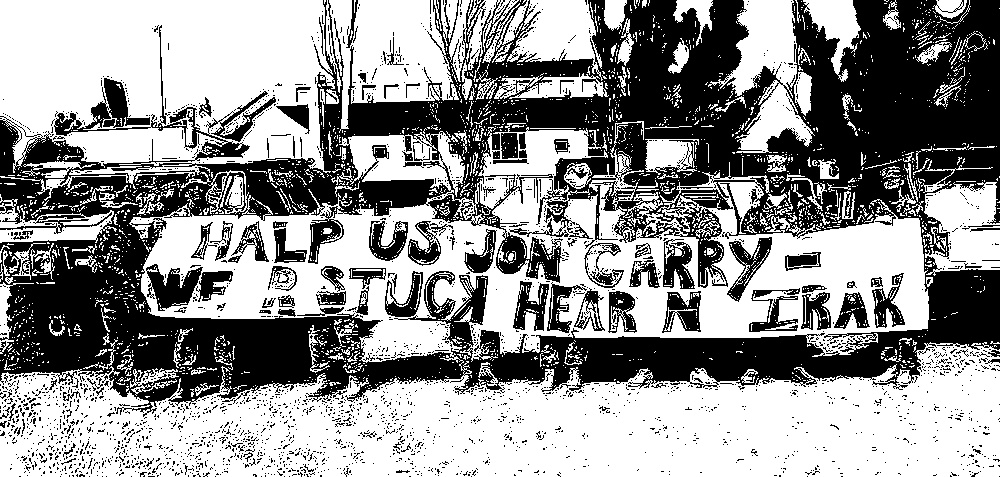 HALP US JON CARRY -
WE R STUCK HEAR N IRAK